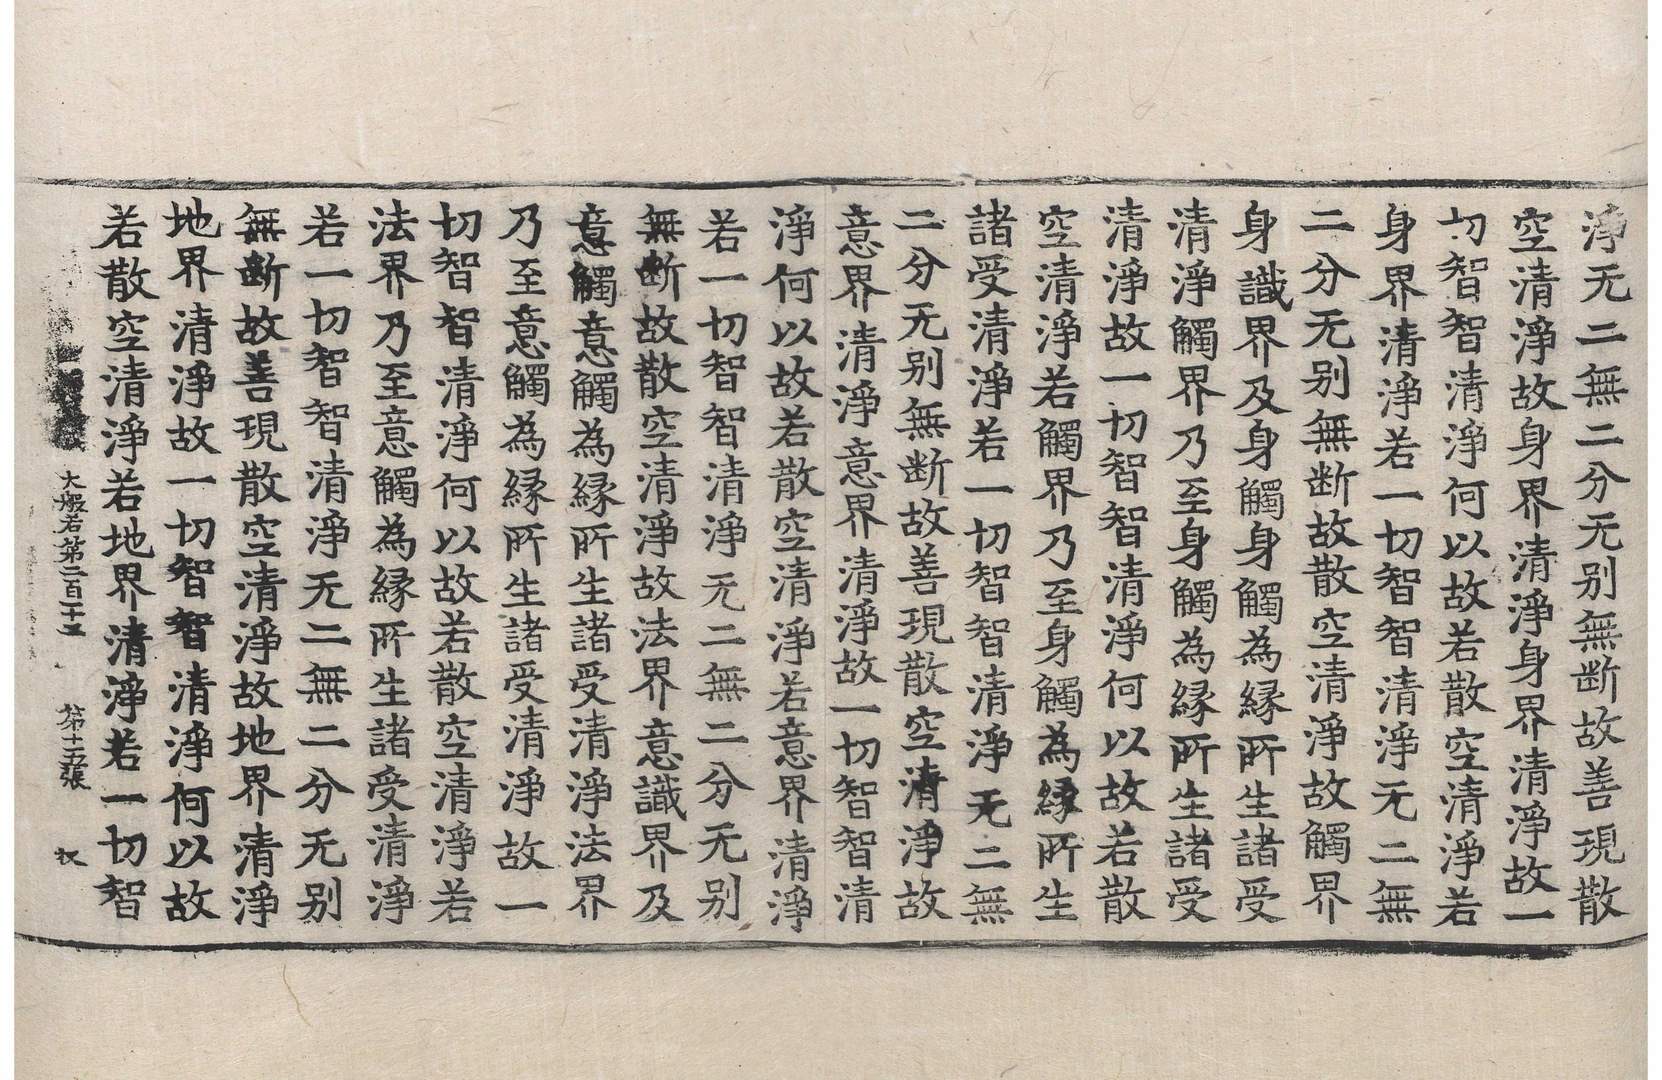 淨无二無二分无別無断故善現散
空清淨故身界清淨身界清淨故一
切智智清淨何以故若散空清淨若
身界清淨若一切智智清淨无二無
二分无別無断故散空清淨故觸界
身識界及身觸身觸為緣所生諸受
清淨觸界乃至身觸為緣所生諸受
清淨故一切智智清淨何以故若散
空清淨若觸界乃至身觸為緣所生
諸受清淨若一切智智清淨无二無
二分无別無断故善現散空清淨故
意界清淨意界清淨故一切智智清
淨何以故若散空清淨若意界清淨
若一切智智清淨无二無二分无別
無断故散空清淨故法界意識界及
意觸意觸為緣所生諸受清淨法界
乃至意觸為緣所生諸受清淨故一
切智智清淨何以故若散空清淨若
法界乃至意觸為緣所生諸受清淨
若一切智智清淨无二無二分无別
無断故善現散空清淨故地界清淨
地界清淨故一切智智清淨何以故
若散空清淨若地界清淨若一切智
大般若第二百十五 第十五張